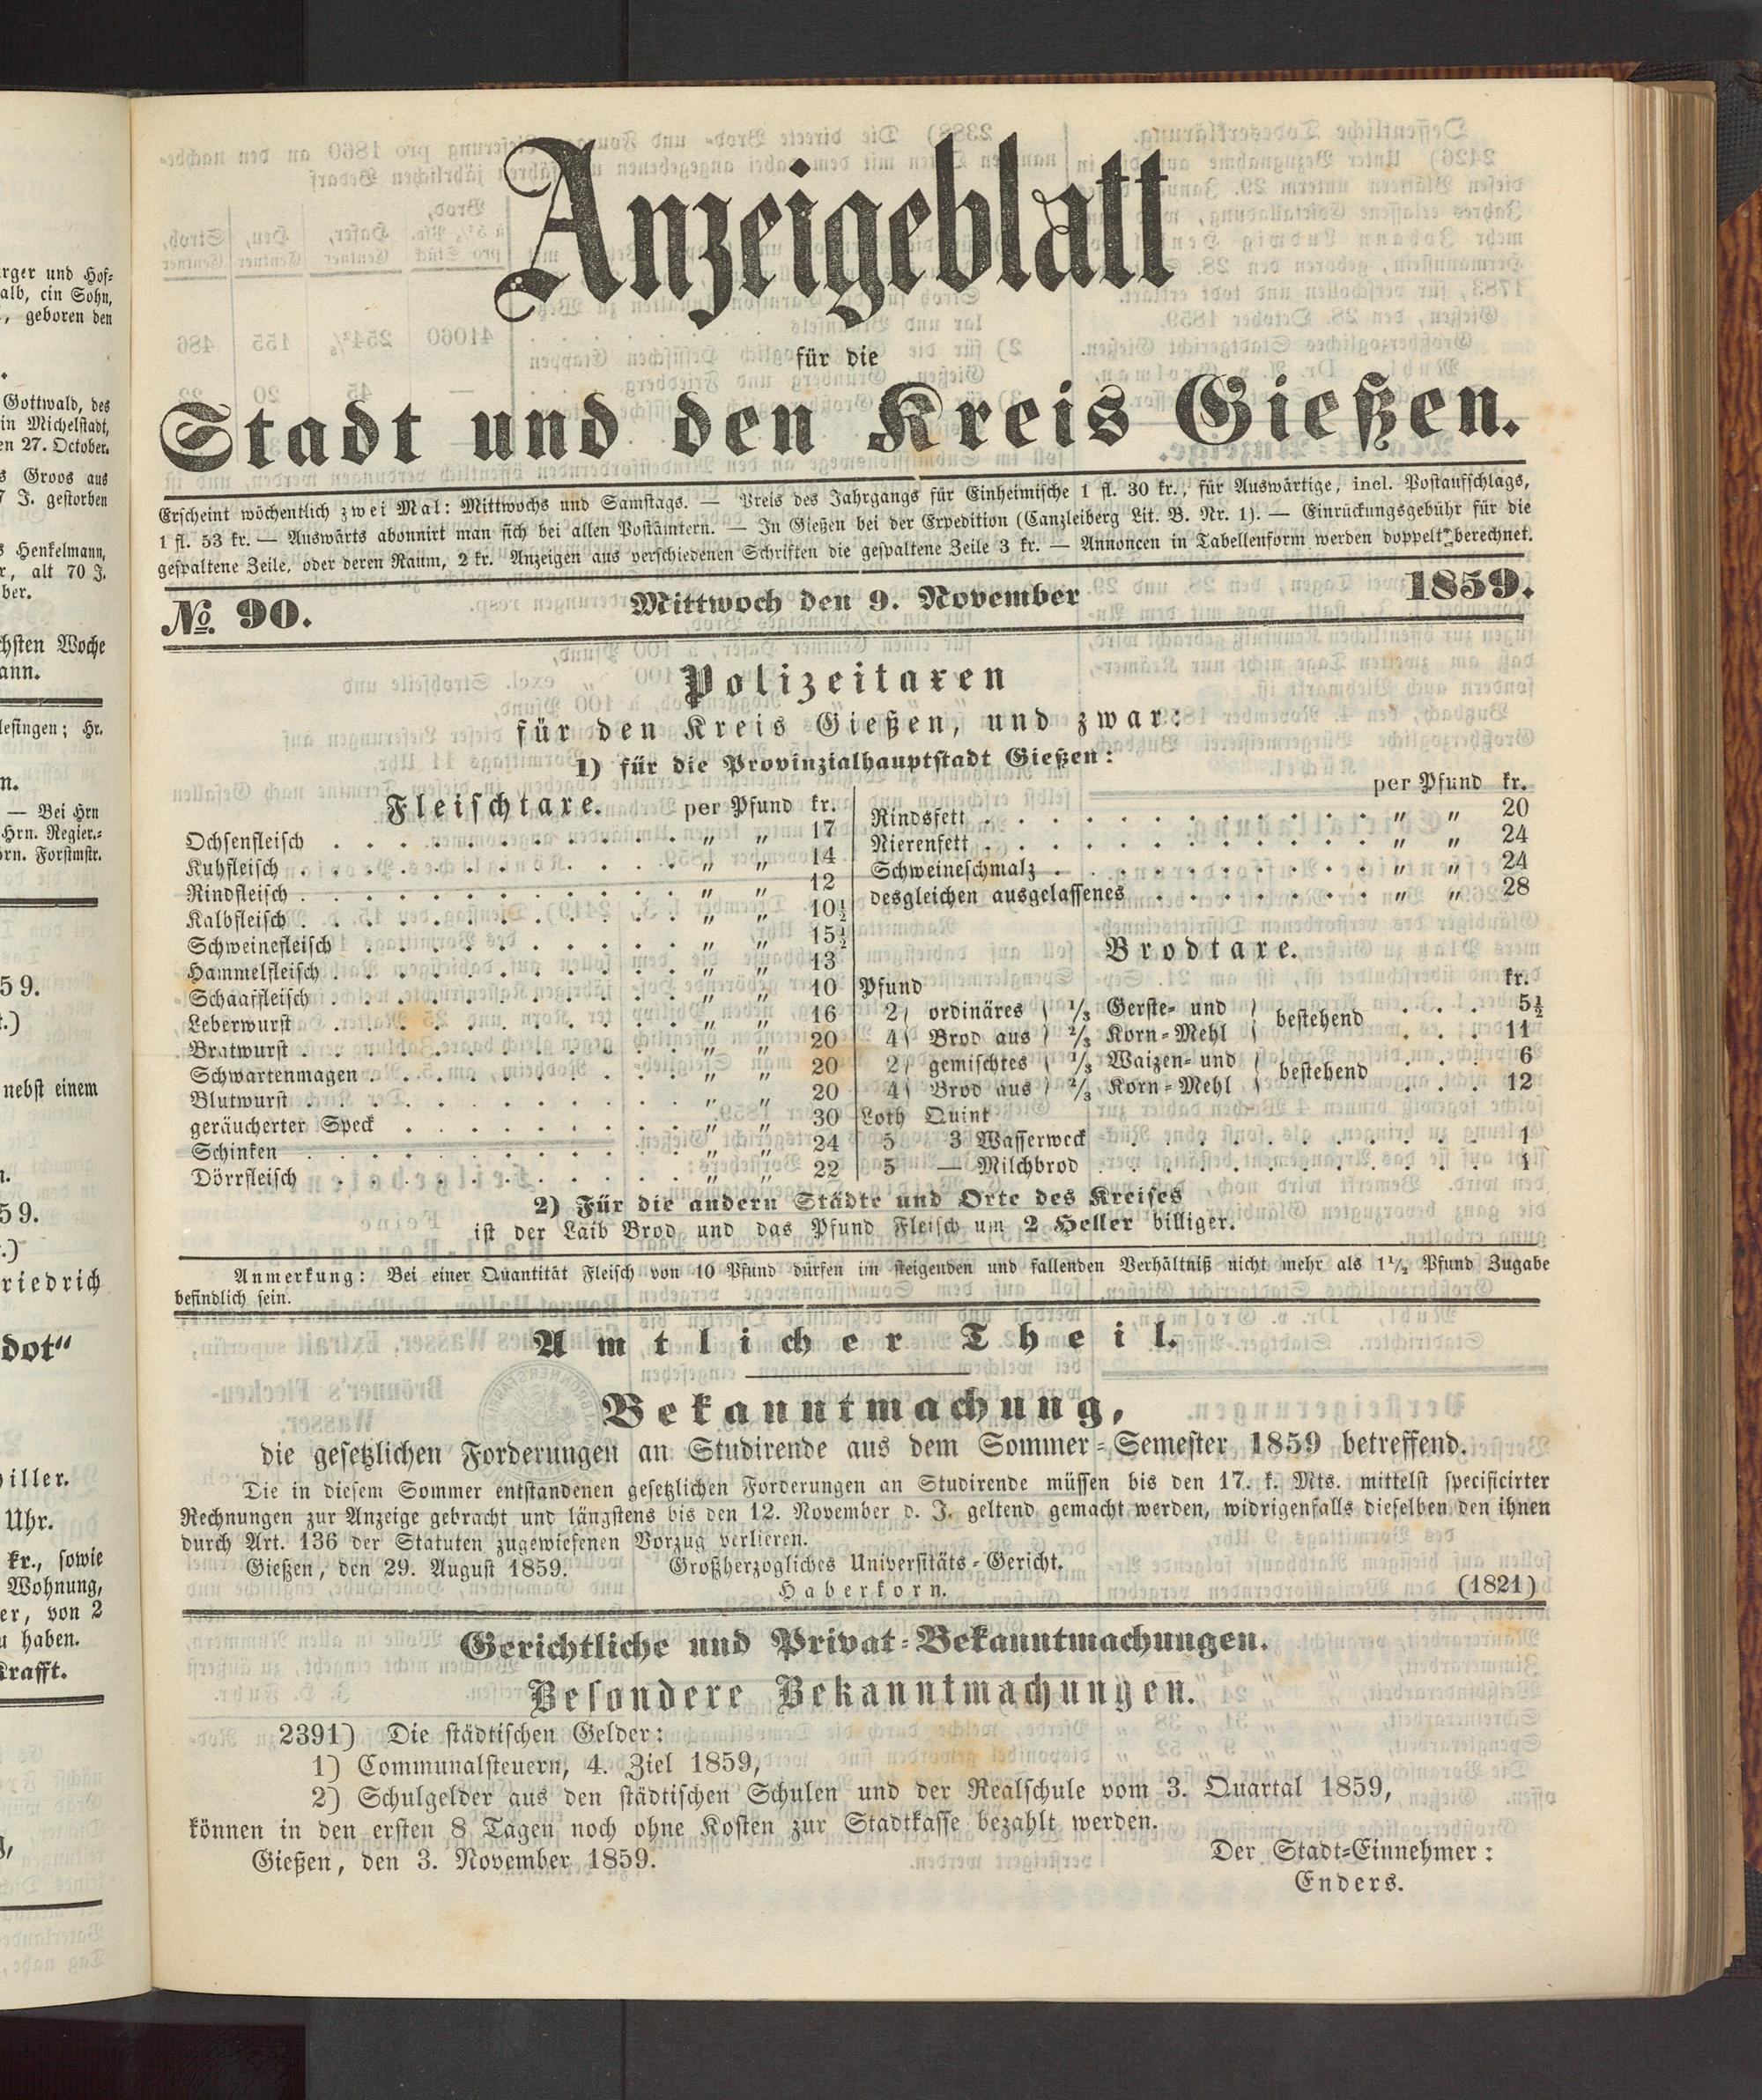 Anzeigeblatt
für die
Stadt und den Kreis Gießen.
Erscheint wöchentlich zwei Mal: Mittwochs und Samstags. — Preis des Jahrgangs für Einheimische 1 fl. 30 kr., für Auswärtige, incl. Postaufschlags,
1 fl. 53 kr. — Auswärts abonnirt man sich bei allen Postämtern. — In Gießen bei der Expedition (Canzleiberg Lit. B. Nr. 1). — Einrückungsgebühr für die
gespaltene Zeile, oder deren Raum, 2 kr. Anzeigen aus verschiedenen Schriften die gespaltene Zeile 3 kr. — Annoncen in Tabellenform werden doppelt berechnet.
№ 90. Mittwoch den 9. November 1859.
Polizeitaxen
für den Kreis Gießen, und zwar:
1) für die Provinzialhauptstadt Gießen:
Fleischtaxe. per Pfund kr.
Ochsenfleisch . . . " " 17
Kuhfleisch . . . " " 14
Rindfleisch . . . " " 12
Kalbfleisch . . . " " 10½
Schweinefleisch . . . " " 15½
Hammelfleisch . . . " " 13
Schaaffleisch . . . " " 10
Leberwurst . . . " " 16
Bratwurst . . . " " 20
Schwartenmagen . . . " " 20
Blutwurst . . . " " 20
geräucherter Speck . . . " " 30
Schinken . . . " " 24
Dörrfleisch . . . " " 22
per Pfund kr.
Rindsfett . . . " " 20
Nierenfett . . . " " 24
Schweineschmalz . . . " " 24
desgleichen ausgelassenes . . . " " 28
Brodtaxe.
Pfund kr.
2) ordinäres ( 1/3 Gerste- und ) bestehend . . . 5½
4) Brod aus ) 2/3 Korn-Mehl ( . . . 11
2) gemischtes ( 1/3 Waizen- und ) bestehend . . . 6
4) Brod aus ) 2/3 Korn-Mehl ( . . . 12
Loth Quint
5 3 Wasserweck . . . 1
5 — Milchbrod . . . 1
2) Für die andern Städte und Orte des Kreises
ist der Laib Brod und das Pfund Fleisch um 2 Heller billiger.
Anmerkung: Bei einer Quantität Fleisch von 10 Pfund dürfen im steigenden und fallenden Verhältniß nicht mehr als 1½ Pfund Zugabe
befindlich sein.
Amtlicher Theil.
Bekanntmachung,
die gesetzlichen Forderungen an Studirende aus dem Sommer-Semester 1859 betreffend.
Die in diesem Sommer entstandenen gesetzlichen Forderungen an Studirende müssen bis den 17. k. Mts. mittelst specificirter
Rechnungen zur Anzeige gebracht und längstens bis den 12. November d. J. geltend gemacht werden, widrigenfalls dieselben den ihnen
durch Art. 136 der Statuten zugewiesenen Vorzug verlieren.
Gießen, den 29. August 1859. Großherzogliches Universitäts-Gericht.
Haberkorn. (1821)
Gerichtliche und Privat-Bekanntmachungen.
Besondere Bekanntmachungen.
2391) Die städtischen Gelder:
1) Communalsteuern, 4. Ziel 1859,
2) Schulgelder aus den städtischen Schulen und der Realschule vom 3. Quartal 1859,
können in den ersten 8 Tagen noch ohne Kosten zur Stadtkasse bezahlt werden.
Gießen, den 3. November 1859. Der Stadt-Einnehmer:
Enders.